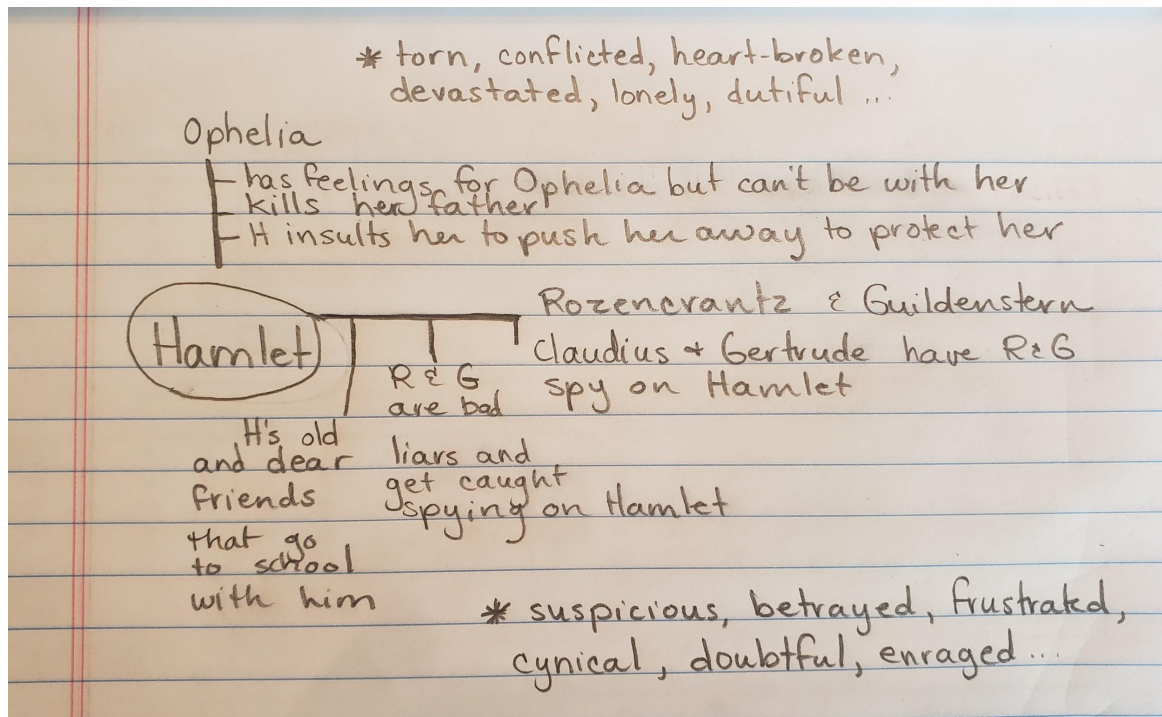 * torn, conflicted, heart-broken,
devastated, lonely, dutiful ...
Ophelia
- has feelings for Ophelia but can't be with her
- kills her father
- H insults her to push her away to protect her
Hamlet
Rozencrantz & Guildenstern
Claudius + Gertrude have R&G
spy on Hamlet
R & G
are bad
liars and
get caught
spying on Hamlet
H's old
and dear
friends
that go
to school
with him
* suspicious, betrayed, frustrated,
cynical, doubtful, enraged ...